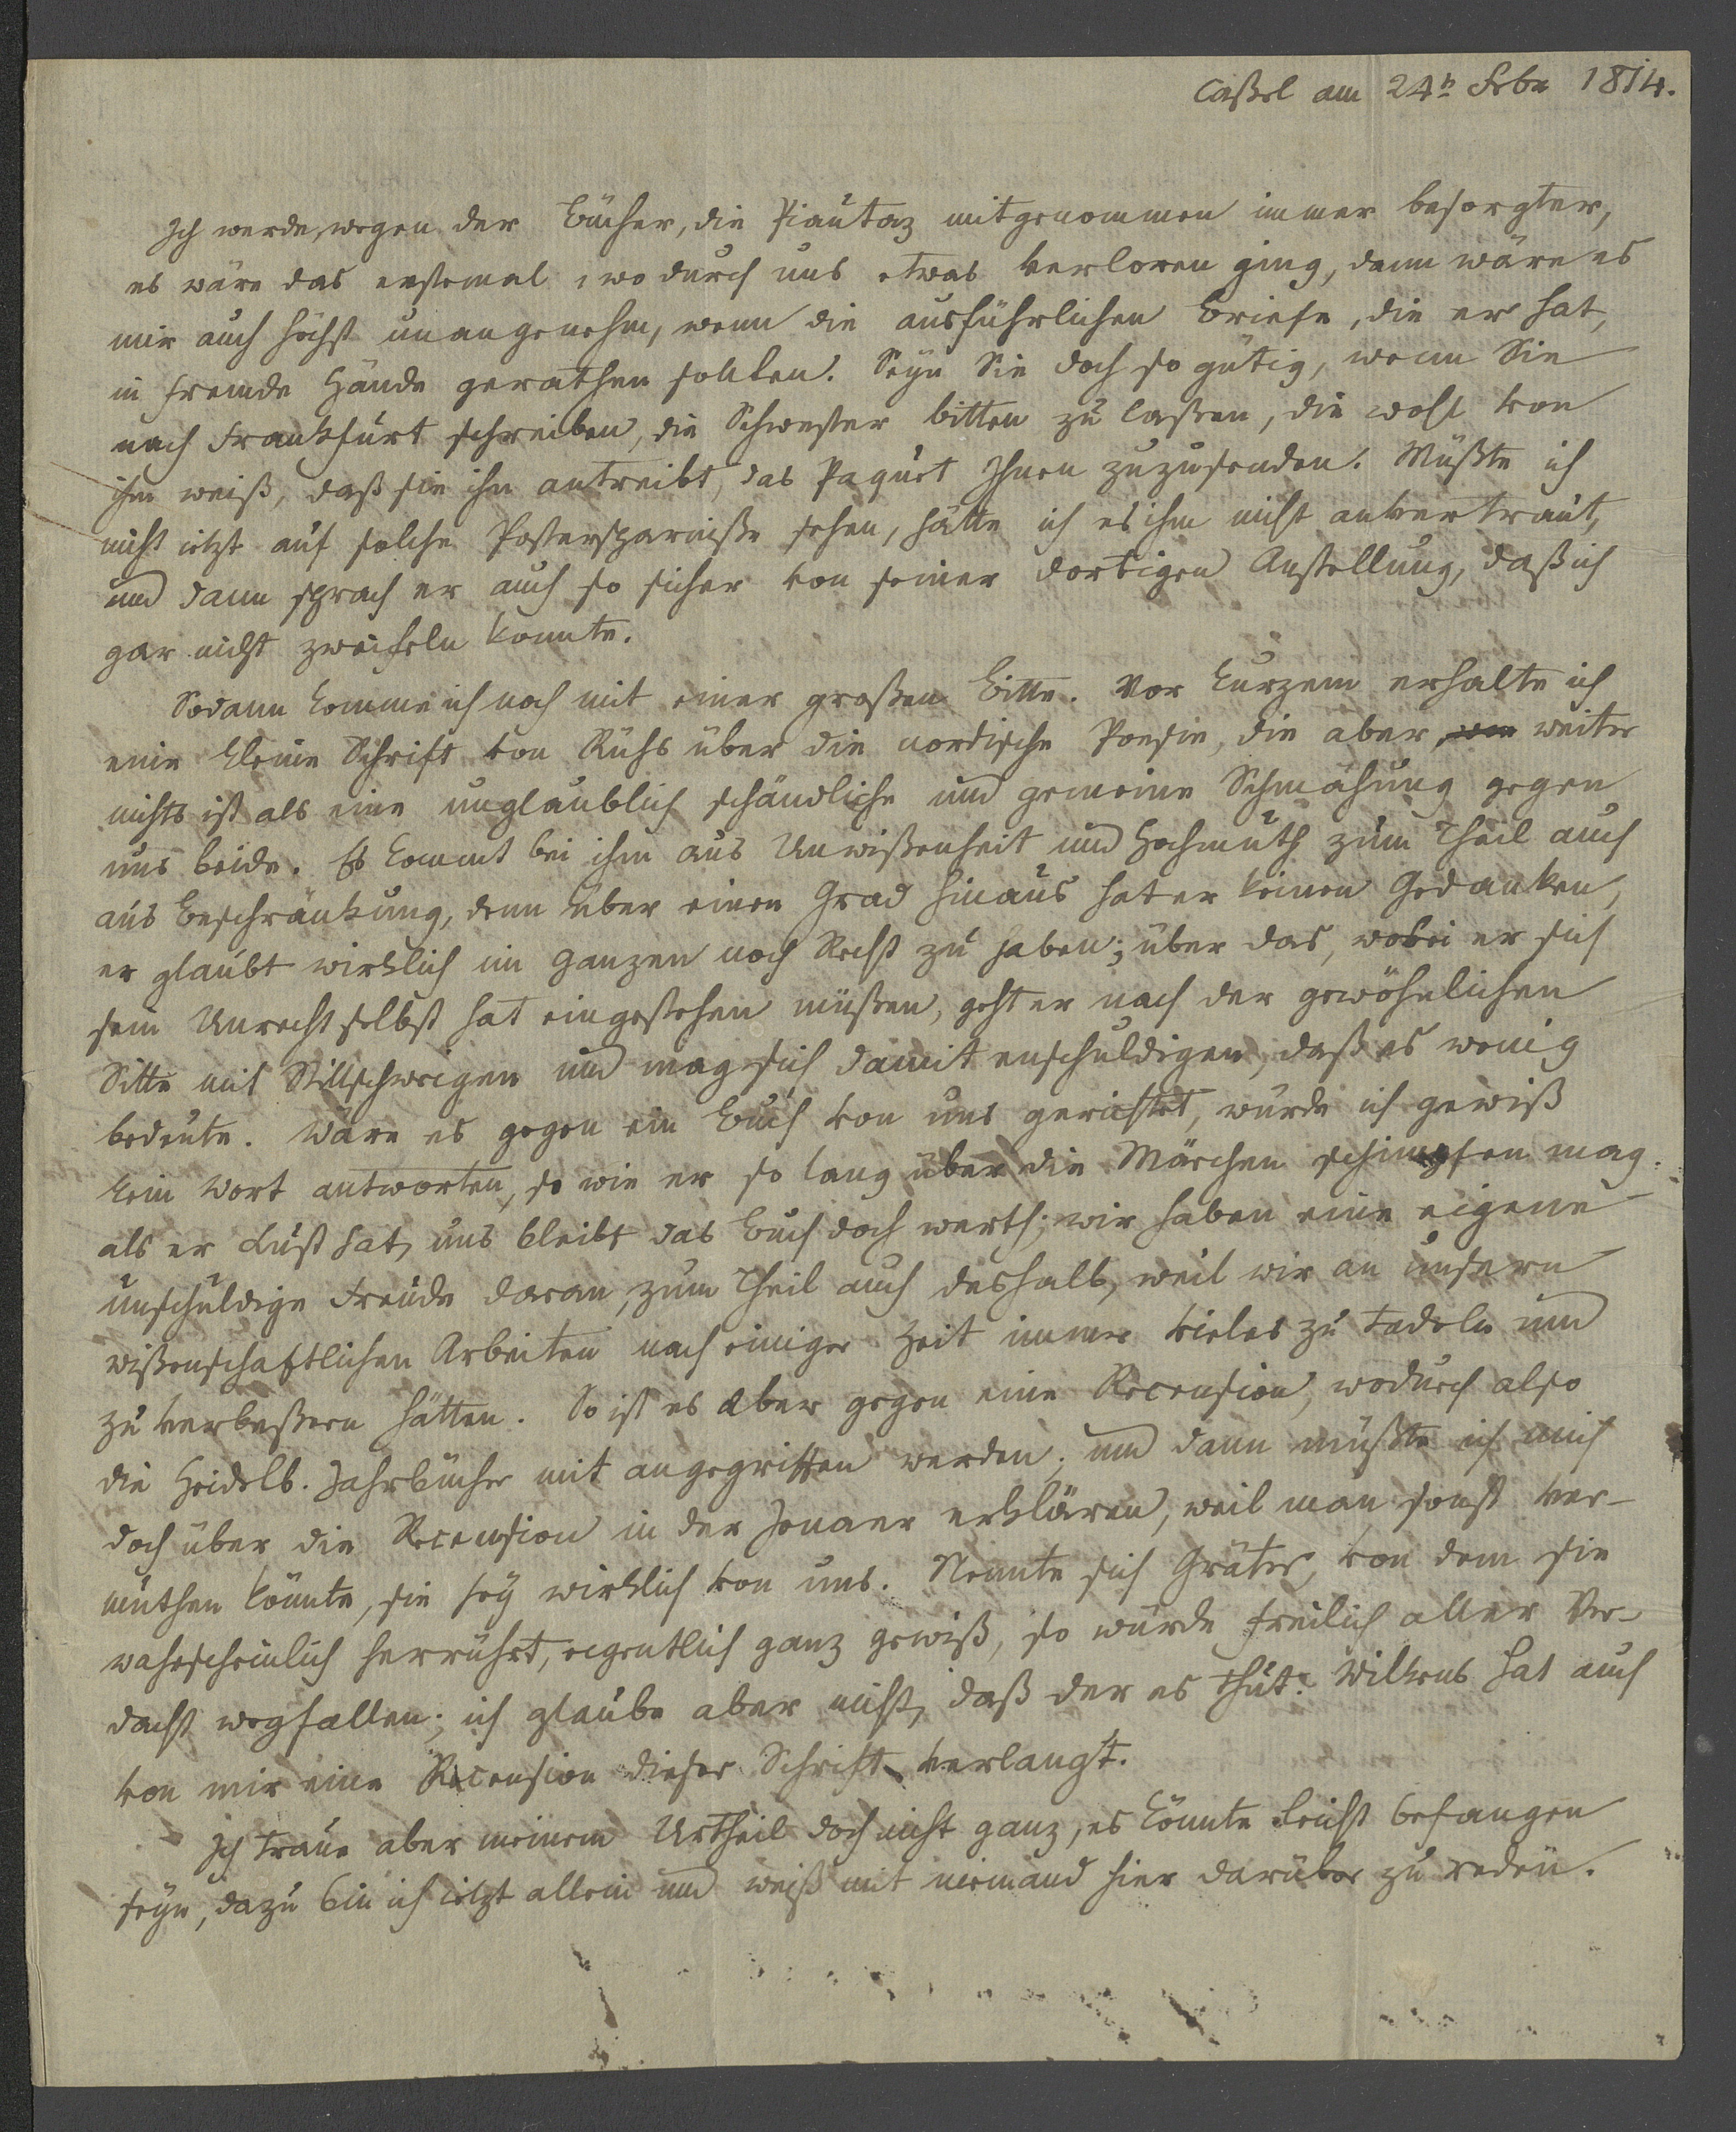 Caßel am 24n Febr 1814.
Ich werde, wegen der Bücher, die Piautaz mitgenommen immer besorgter,
es wäre das erstemal, wo durch uns etwas verloren ging, dann wäre es
mir auch höchst unangenehm, wenn die ausführlichen Briefe, die er hat,
in fremde Hände gerathen sollten. Seyn Sie doch so gütig, wenn Sie
nach Frankfurt schreiben, die Schwester bitten zu laßen, die wohl von
ihm weiß, daß sie ihn antreibt, das Paquet Ihnen zuzusenden. Müßte ich
nicht jetzt auf solche Postersparniße sehen, hätte ich es ihm nicht anvertraut,
und dann sprach er auch so sicher von seiner dortigen Anstellung, daß ich
gar nicht zweifeln konnte.
Sodann komme ich noch mit einer großen Bitte. Vor kurzem erhalte ich
eine kleine Schrift von Rühs über die nordische Poesie, die aber weiter
nichts ist als eine unglaublich schändliche und gemeine Schmähung gegen
uns beide. Es kommt bei ihm aus Unwißenheit und Hochmuth zum Theil auch
aus Beschränkung, denn über einen Grad hinaus hat er keinen Gedanken,
er glaubt wirklich im Ganzen noch Recht zu haben; über das, wobei er sich
sein Unrecht selbst hat eingestehen müßen, geht er nach der gewöhnlichen
Sitte mit Stillschweigen und mag sich damit enschuldigen, daß es wenig
bedeute. Wäre es gegen ein Buch von uns gerichtet, würde ich gewiß
kein Wort antworten, so wie er so lang über die Märchen schimpfen mag
als er Lust hat, uns bleibt das Buch doch werth; wir haben eine eigene
unschuldige Freude daran, zum Theil auch deshalb, weil wir an unsern
wißenschaftlichen Arbeiten nach einiger Zeit immer vieles zu tadeln und
zu verbeßern hätten. So ist es aber gegen eine Recension, wodurch also
die Heidelb. Jahrbücher mit angegriffen werden; und dann müßte ich mich
doch über die Recension in der Jenaer erklären, weil man sonst ver-
muthen könnte, sie sey wirklich von uns. Nennte sich Gräter, von dem sie
wahrscheinlich herrührt, eigentlich ganz gewiß, so würde freilich aller Ver-
dacht wegfallen; ich glaube aber nicht, daß der es thut. Wilkens hat auch
von mir eine Recension dieser Schrift verlangt.
Ich traue aber meinem Urtheil doch nicht ganz, es könnte leicht befangen
seyn, dazu bin ich jetzt allein und weiß mit niemand hier darüber zu reden.